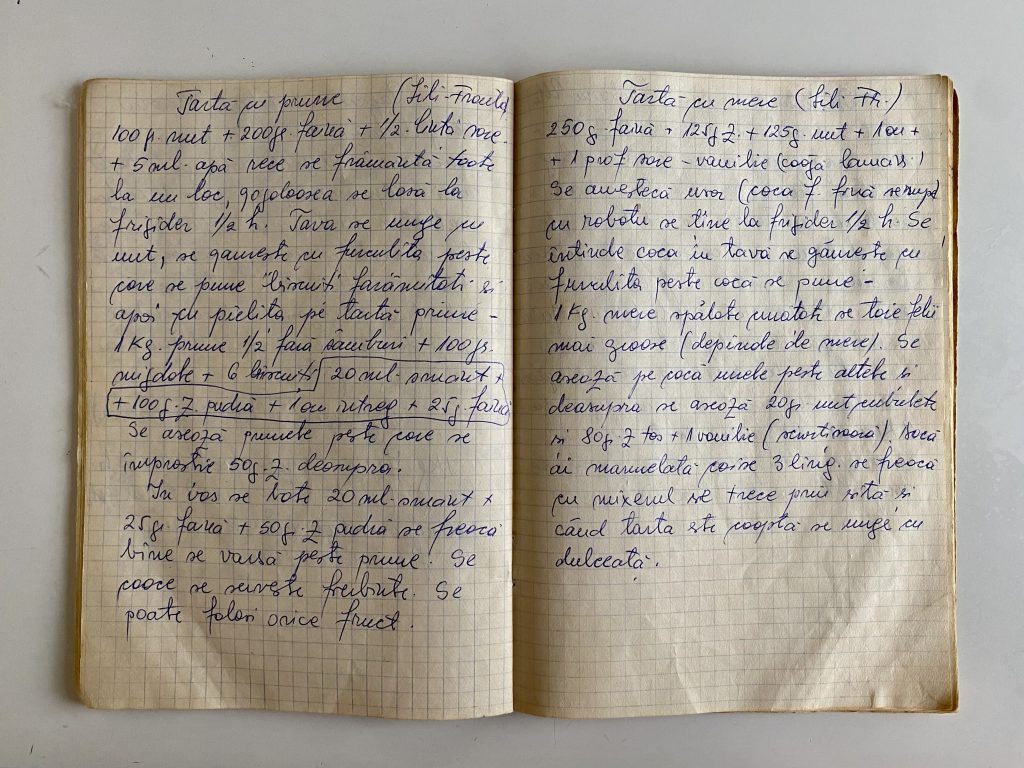 Tartă cu prune (Lili-Franța)
100 g. unt + 200 g. faină + 1/2 lință sare
+ 5 ml. apă rece se frământă toate
la un loc, gogoloașa se lasă la
frigider 1/2 h. Tava se unge cu
unt, se găurește cu furculița peste
care se pune "biscuiți" farâmitati și
apoi cu pielița pe tartă prune -
1 Kg. prune 1/2 fără sâmburi + 100 gr.
migdale + 6 biscuiți 20 ml. smânt +
+ 100 g. Z pudră + 1 ou întreg + 25 g. faină
Se asează prunele peste care se
împrostie 50 g. Z. deasupra.
În vas se bate 20 ml. smânt +
25 g. faină + 50 g. Z pudră se freacă
bine se varsă peste prune. Se
coace se servește fierbinte. Se
poate folosi orice fruct.
Tartă cu mere (Lili Fr.)
250 g. faină + 125 g Z. + 125 g. unt + 1 ou +
+ 1 praf sare - vanilie (coajă lamâi)
Se amestecă ușor (coca f. fină se rupe)
cu robotu se tine la frigider 1/2 h. Se
întinde coca în tavă se găurește cu
furculița peste cocă se pune -
1 Kg. mere spălate curatate se taie felii
mai groase (depinde de mere). Se
asează pe cocă unele peste altele și
deasupra se asează 20 g unt cubulete
și 80 g. Z tos + 1 vanilie (scortisoară). Dacă
ai marmelată caise 3 ling. se freacă
cu mixerul se trece prin sită și
când tarta este coaptă se unge cu
dulceată.